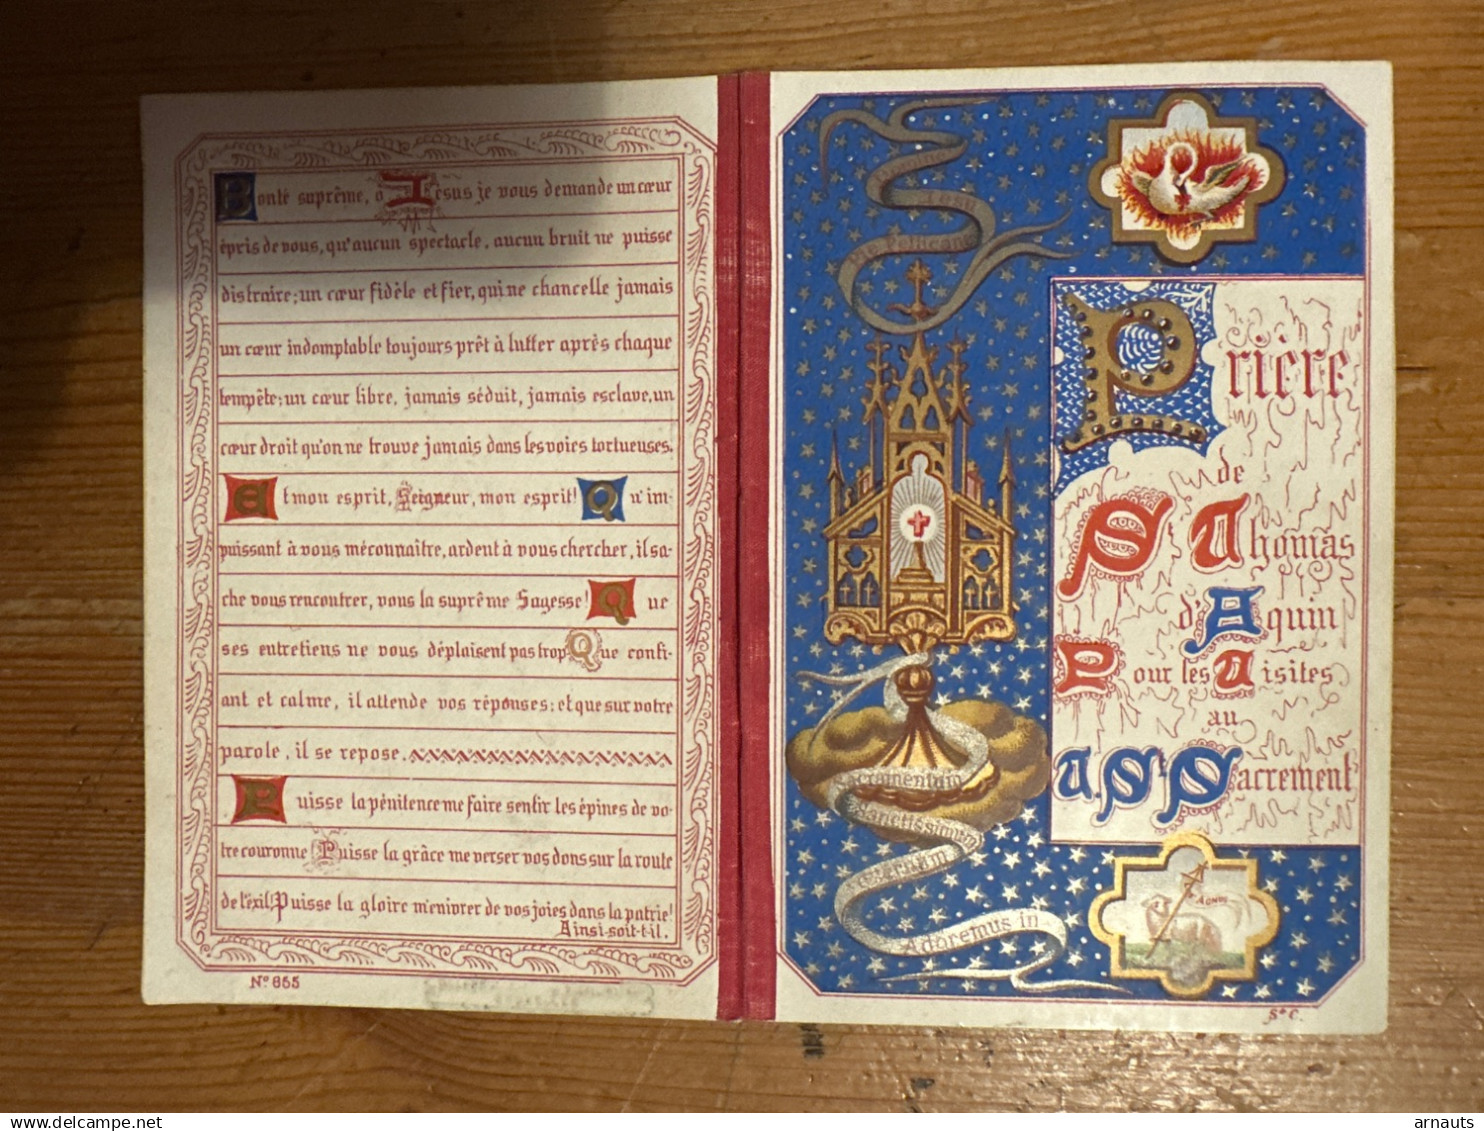 Bonté suprême, ô Jésus je vous demande un cœur
épris de vous, qu'aucun spectacle, aucun bruit ne puisse
distraire; un cœur fidèle et fier, qui ne chancelle jamais
un cœur indomptable toujours prêt à lutter après chaque
tempête; un cœur libre, jamais séduit, jamais esclave, un
cœur droit qu'on ne trouve jamais dans les voies tortueuses.
Et mon esprit, Seigneur, mon esprit! Qu'im-
puissant à vous méconnaître, ardent à vous chercher, il sa-
che vous rencontrer, vous la suprême Sagesse! Que
ses entretiens ne vous déplaisent pas trop Que confi-
ant et calme, il attende vos réponses; et que sur votre
parole, il se repose.
Puisse la pénitence me faire sentir les épines de vo-
tre couronne Puisse la grâce me verser vos dons sur la route
de l'exil! Puisse la gloire m'enivrer de vos joies dans la patrie!
Ainsi-soit-t-il.
Nº 855
Pellicane
Jesu
Prière
de
St Thomas
d'Aquin
Pour les Visites
au
St Sacrement
Sacramentum
Sanctissimum
æternum
Adoremus in
Sᵗ C.
arnauts
delcampe.net